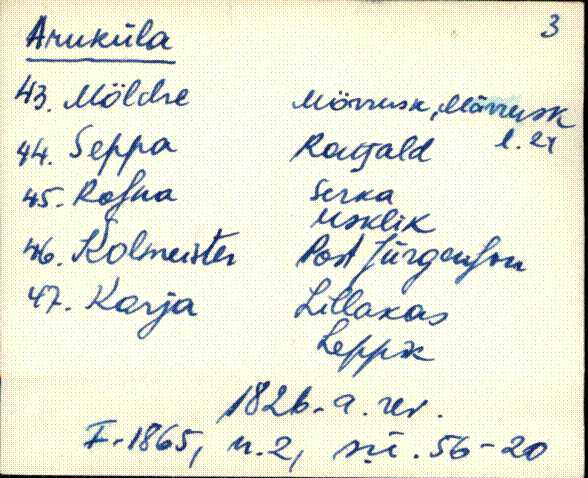 Aruküla 3
43. Möldre Mörrusk, Märrusk
l. 24
44. Seppa Ratfald
45. Rosna Serka
Usklik
46. Kolmeister Post Jürgenson
47. Karja Lillakas
Leppik
1826. a. rev.
F. 1865, n. 2, sü. 56-20